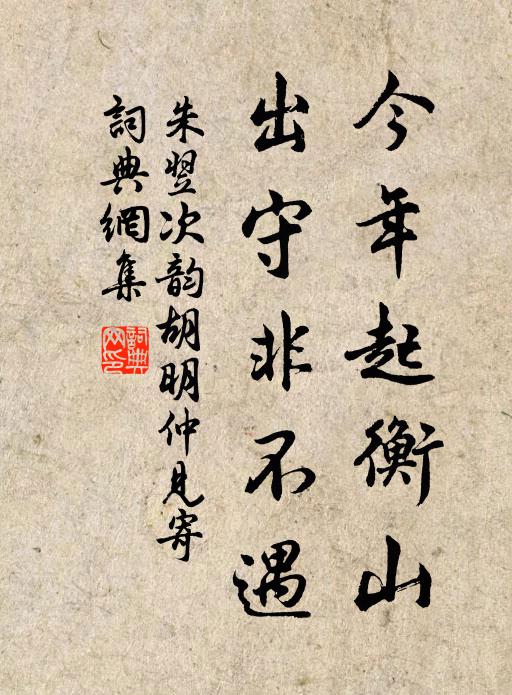 今年起衡山
出守非不遇
朱翌次韵胡明仲見寄
詞典網集
詞典網印